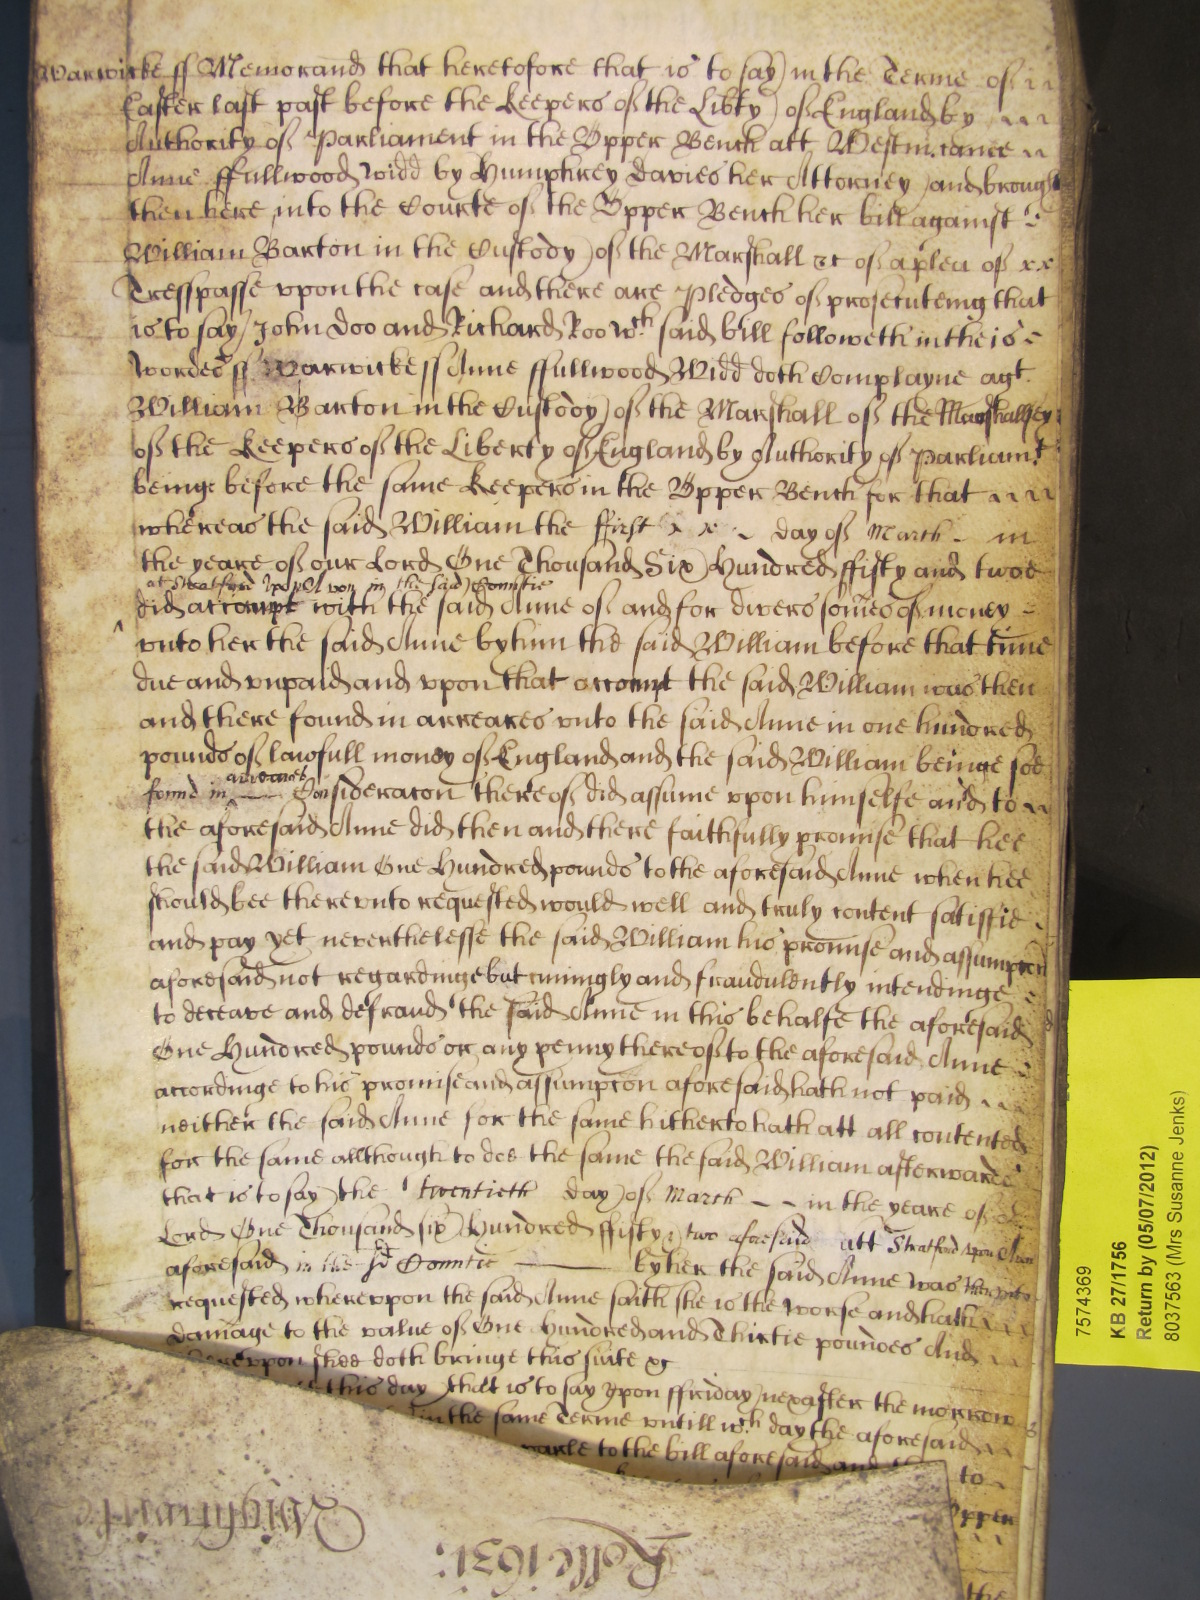 Warwicke ss Memorand that heretofore that is to say in the Terme of
Easter last past before the Keepers of the Libty of England by
Authority of Parliament in the Upper Bench att Westm. came
Anne ffullwood widd by Humphrey Davies her Attorney and brought
then here into the Courte of the Upper Bench her bill against
William Barton in the Custody of the Marshall &c of a plea of
Tresspasse upon the case and there are Pledges of prosecuteing that
is to say John Doo and Richard Roo wch said bill followeth in theis
wordes ss Warwicke ss Anne ffullwood Widd doth Complayne agt.
William Barton in the Custody of the Marshall of the Marshallsey
of the Keepers of the Liberty of England by Authority of Parliamt
beinge before the same Keepers in the Upper Bench for that
whereas the said William the ffirst day of March in
the yeare of our Lord One Thousand Six Hundred ffifty and twoe
at Stratford upon Avon in the said Countie
did accompt with the said Anne of and for divers somes of money
vnto her the said Anne by him the said William before that time
due and vnpaid and vpon that accompt the said William was then
and there found in arreares vnto the said Anne in one hundred
pounds of lawfull money of England and the said William beinge soe
arreares
found in Consideracon thereof did assume vpon himselfe and to
the aforesaid Anne did then and there faithfully promise that hee
the said William One Hundred pounds to the aforesaid Anne when hee
should bee therevnto requested would well and truly content satisfie
and pay yet neverthelesse the said William his promise and assumpcon
aforesaid not regardinge but cuningly and fraudulently intendinge
to deceave and defraud the said Anne in this behalfe the aforesaid
One Hundred pounds or any penny thereof to the aforesaid Anne
accordinge to his promise and assumpcon aforesaid hath not paid
neither the said Anne for the same hitherto hath att all contented
for the same allthough to doe the same the said William afterwards
that is to say the twentieth day of March in the yeare of or
Lord One Thousand six Hundred ffifty two aforesaid att Stratford upon Avon
aforesaid in the sd Countie by her the said Anne was therevnto
requested wherevpon the said Anne saith she is the worse and hath
damage to the value of One Hundred and Thirtie poundes And
wherevpon shee doth bringe this suite &c
this day that is to say vpon ffriday next after the morrow
in the same Terme vntill wch day the aforesaid
parle to the bill aforesaid and to
Upper
the
Rolle 1631:
Wightwicke
7574369
KB 27/1756
Return by (05/07/2012)
8037563 (Mrs Susanne Jenks)